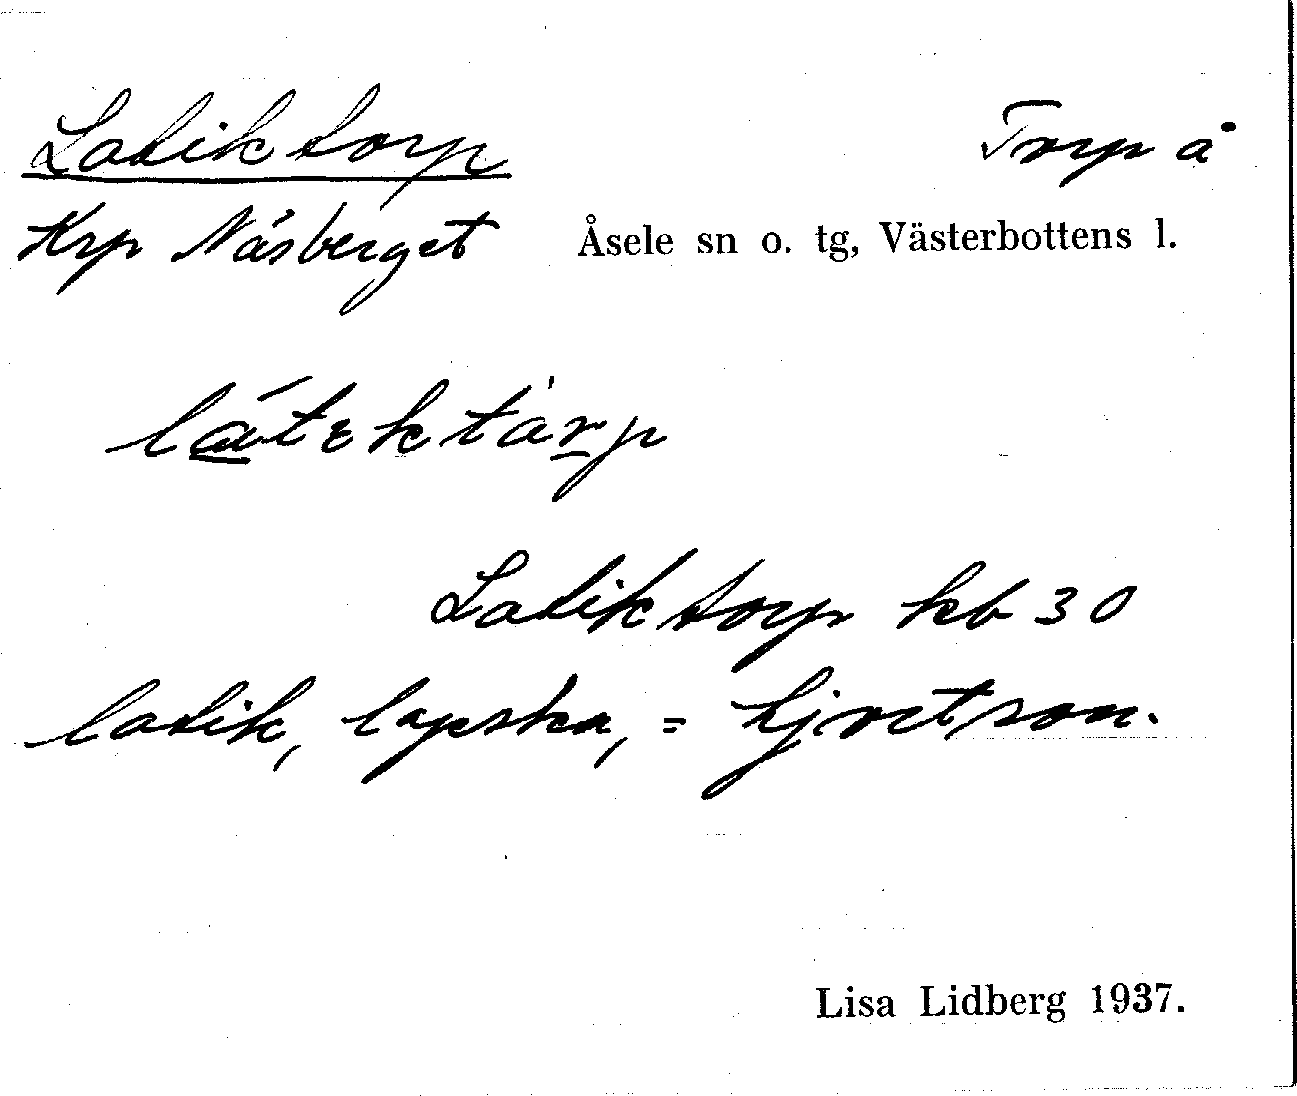 Latiktorp Torp å
Krp Näsberget Åsele sn o. tg, Västerbottens l.
látεktårp
Latiktorp kb 30
latik, lapska, =
Lisa Lidberg 1937.